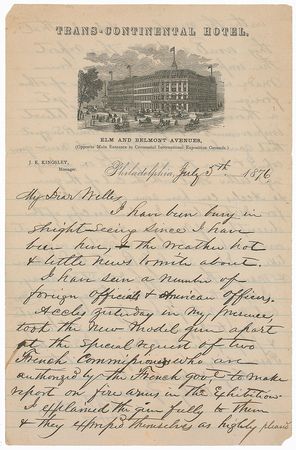 TRANS-CONTINENTAL HOTEL,
ELM AND BELMONT AVENUES,
(Opposite Main Entrance to Centennial International Exposition Grounds.)
J. E. KINGSLEY,
Manager.
Philadelphia, July 5th 1876
My Dear Welles,
I have been busy in
sight-seeing since I have
been here, & the weather hot
& little news to write about.
I have seen a number of
foreign officials & American officers.
yesterday in my presence,
took the new model gun apart
at the special request of two
French Commissioners who are
authorized by the French govt to make
report on fire arms in the Exhibition.
I explained the gun fully to them
& they expressed themselves as highly pleased